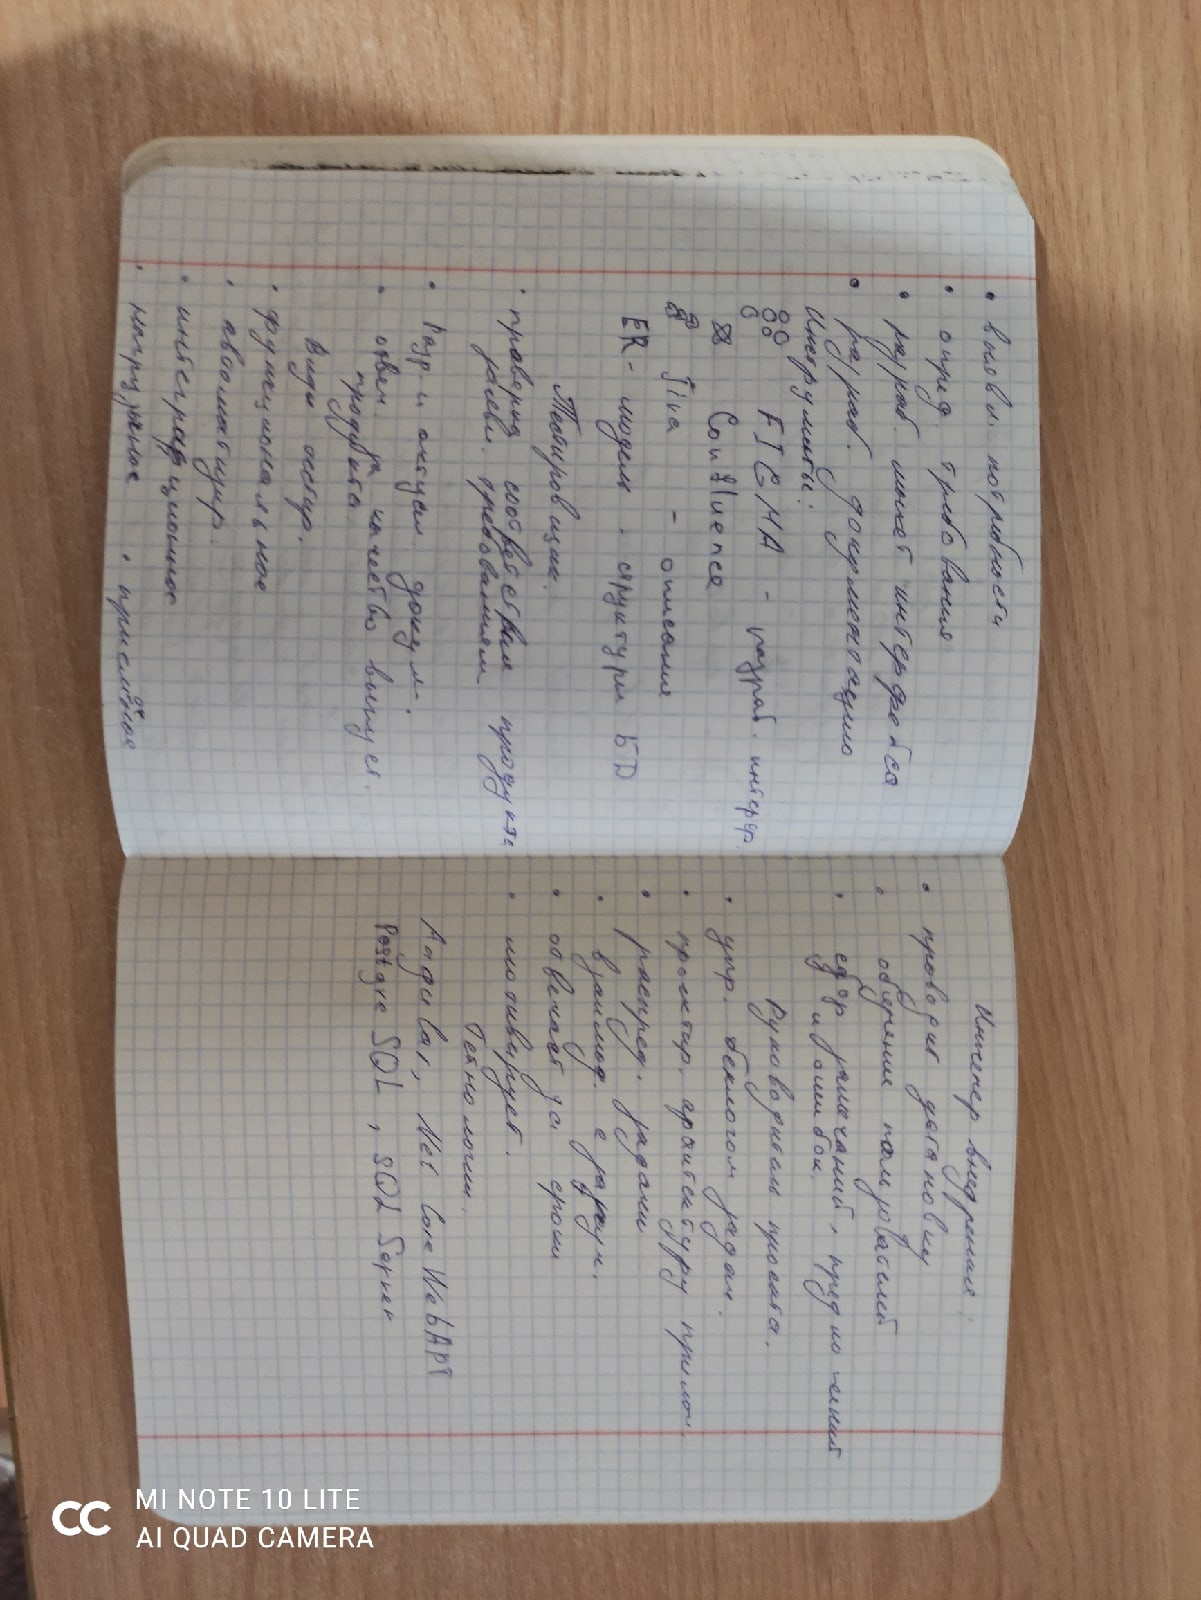 • выявл. потребности
• опред. требования
• разраб. макет интерфейса
• разраб. документацию
Инструменты:
FIGMA - разраб. интерф.
Confluence
Jira - описание
ER - модели. структуры БД
Тестировщик.
• проверяет соответствия продукта
заявл. требованиям
• Разр. и актуал. докум.
• отвеч. за качество выпуск.
продукта
Виды тестир.
• функциональное
• автоматизир.
• интеграционное
• нагрузочное • приемочное
Инженер внедрения:
• проводит установку
• обучение пользователей
• сбор замечаний, предложений
и ошибок
Руководитель проекта.
• упр. беклогом задач.
• проектир. архитектуру прилож.
• распред. задачи
• взаимод. с разун.
• отвечает за сроки
• мотивирует.
Технологии.
Angular, Net Core WebAPI
PostgreSQL, SQL Server
MI NOTE 10 LITE
AI QUAD CAMERA